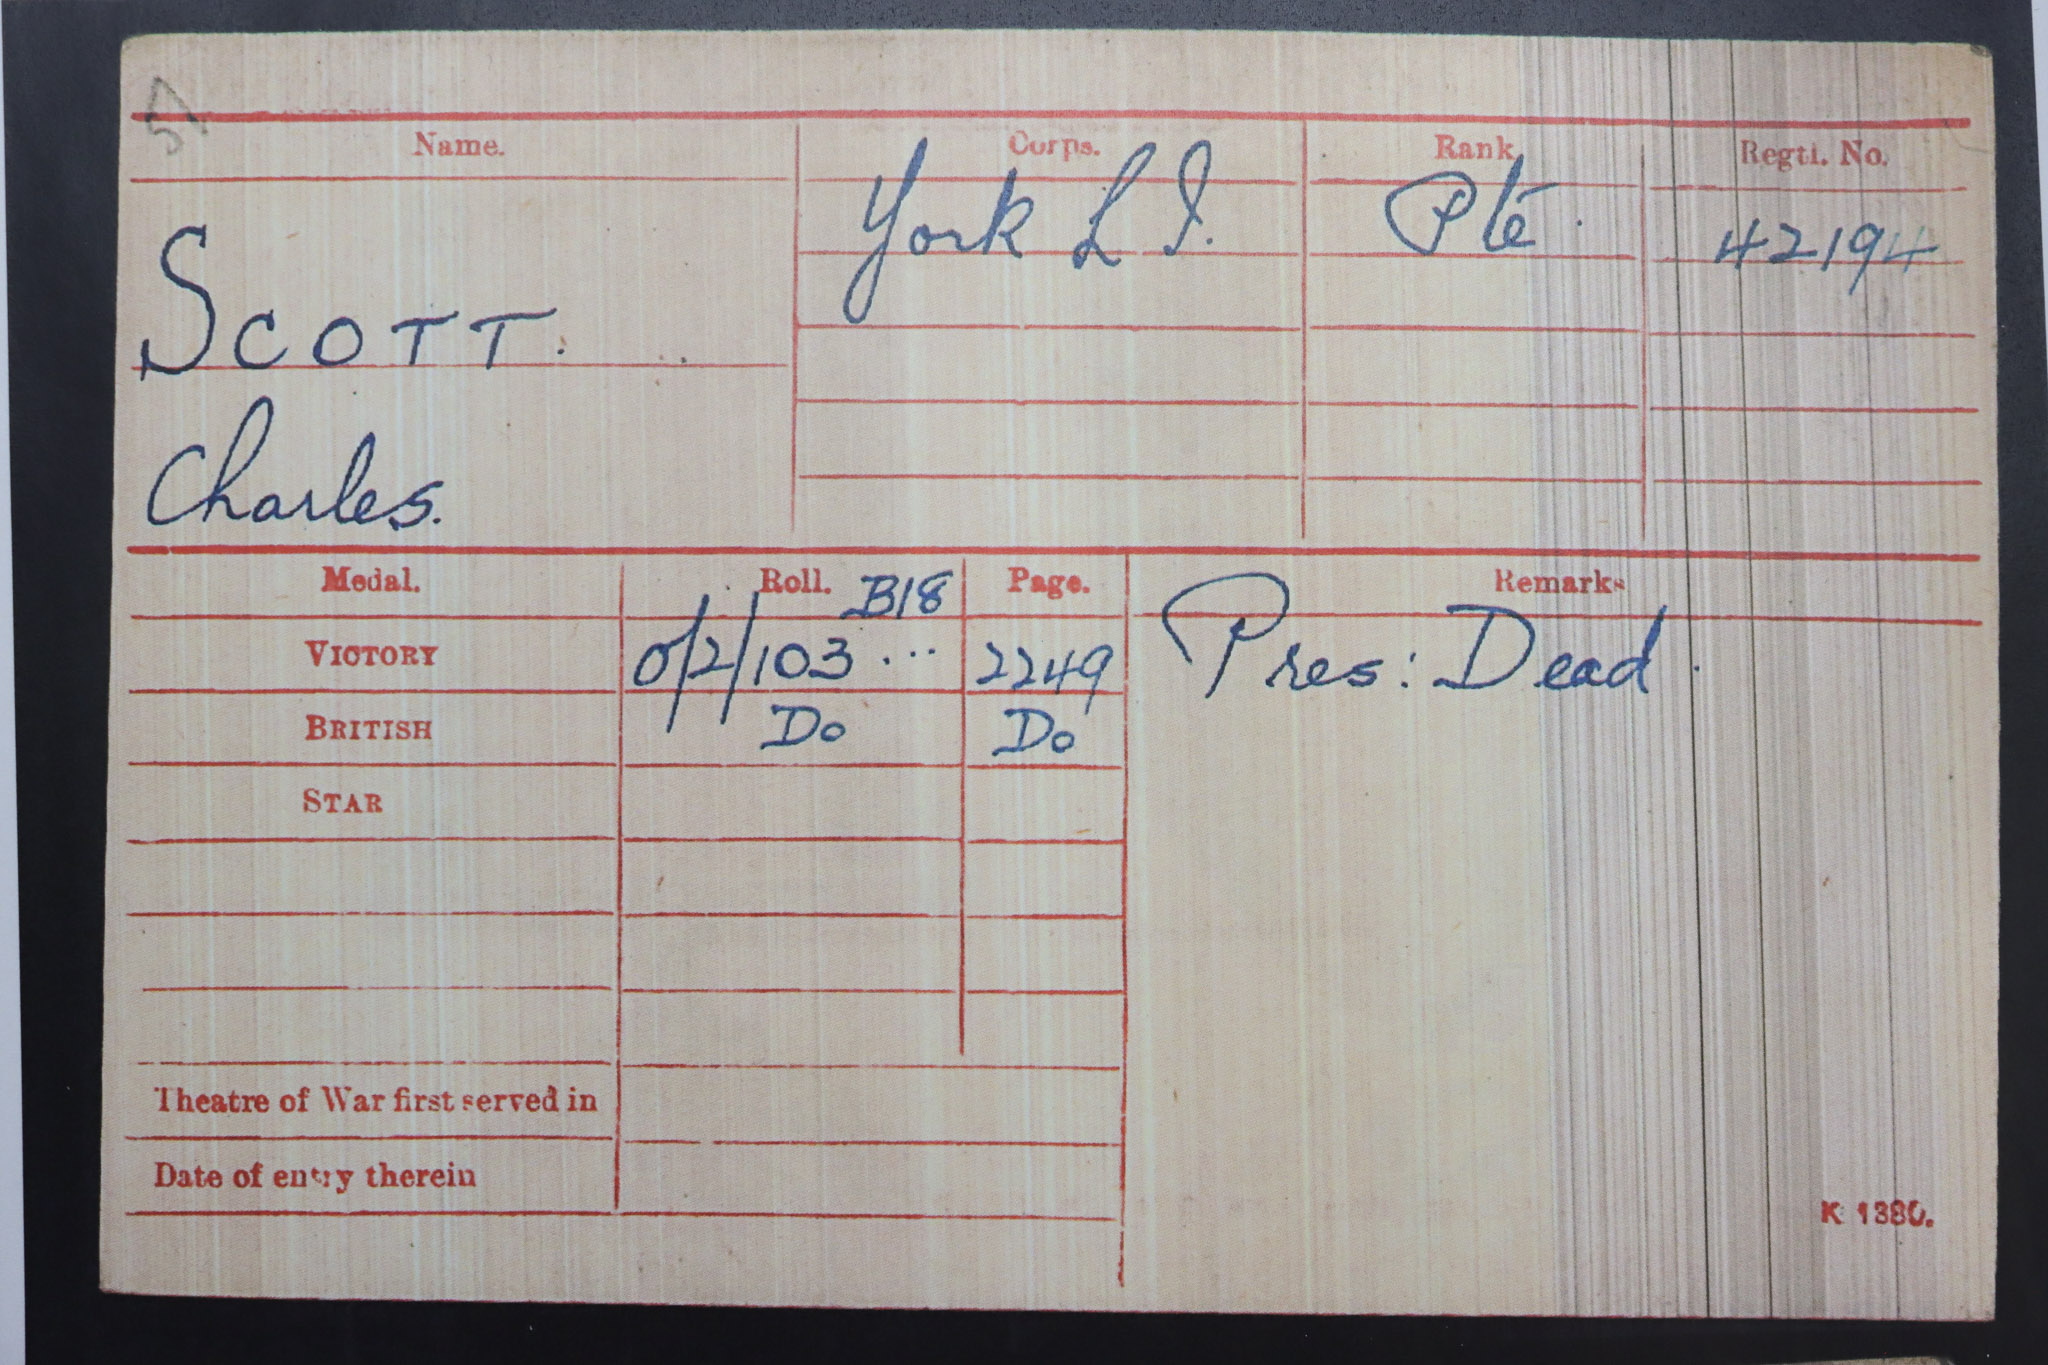 57
Name. Corps. Rank Regtl. No.
York L I. Pte. 42194
SCOTT.
Charles.
Medal. Roll. B18 Page. Remarks
VICTORY 0/2/103 ... 2249 Pres: Dead.
BRITISH Do Do
STAR
Theatre of War first served in
Date of entry therein
K 1380.